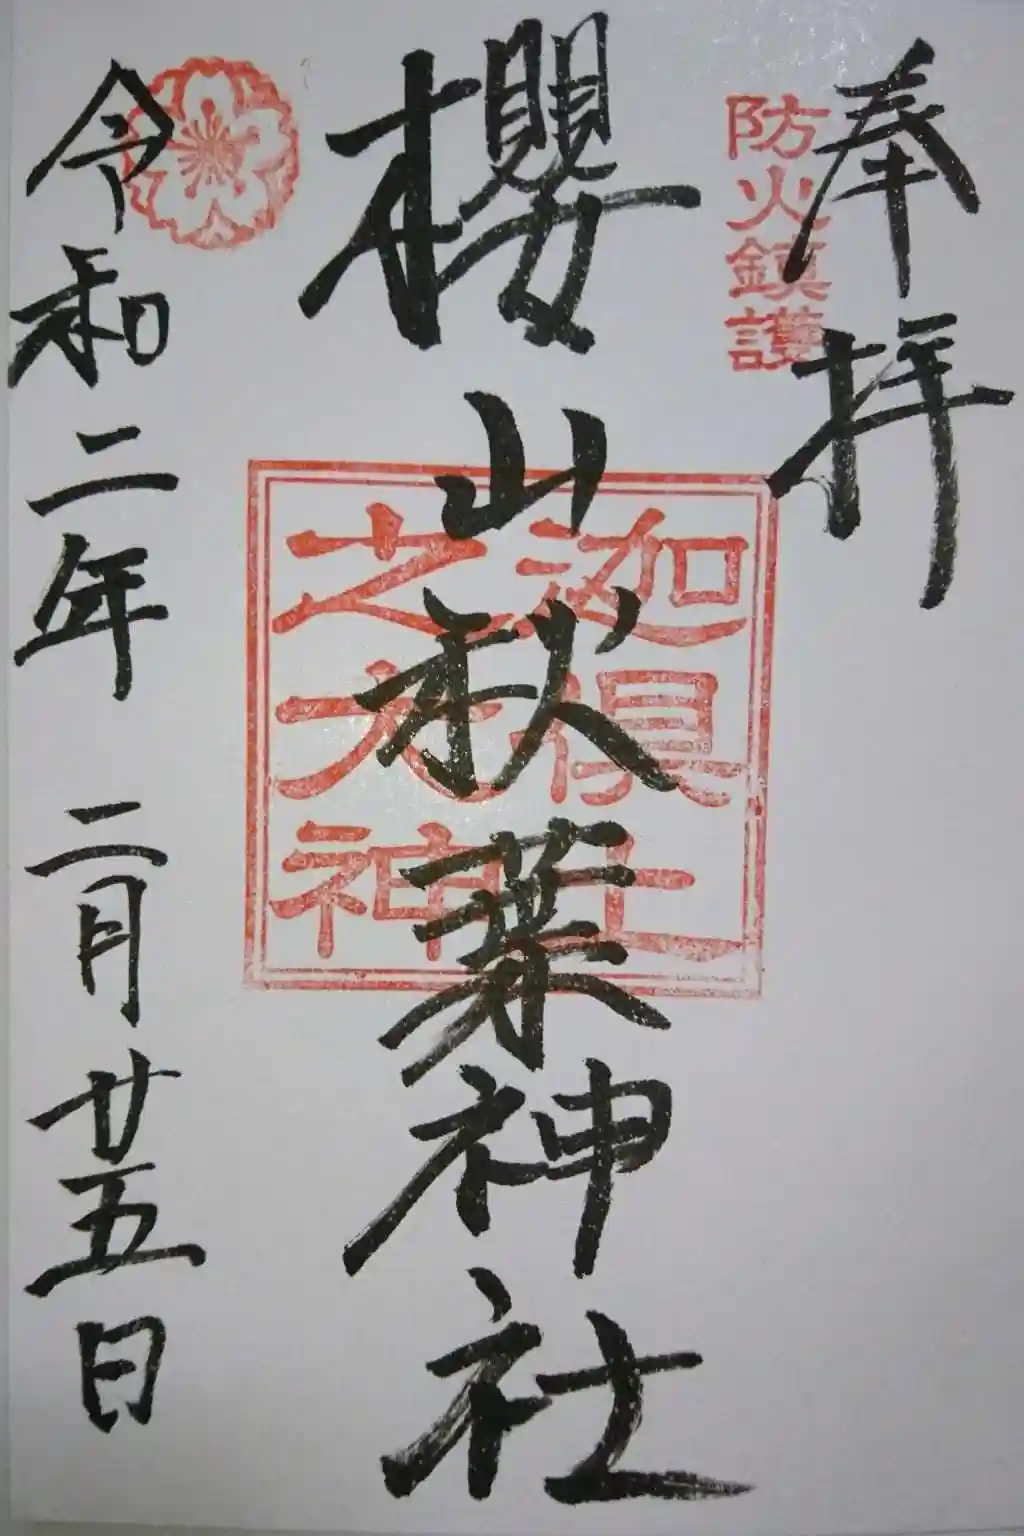 奉拝
防火鎮護
櫻山秋葉神社
迦具土
之大神
令和二年二月廿五日